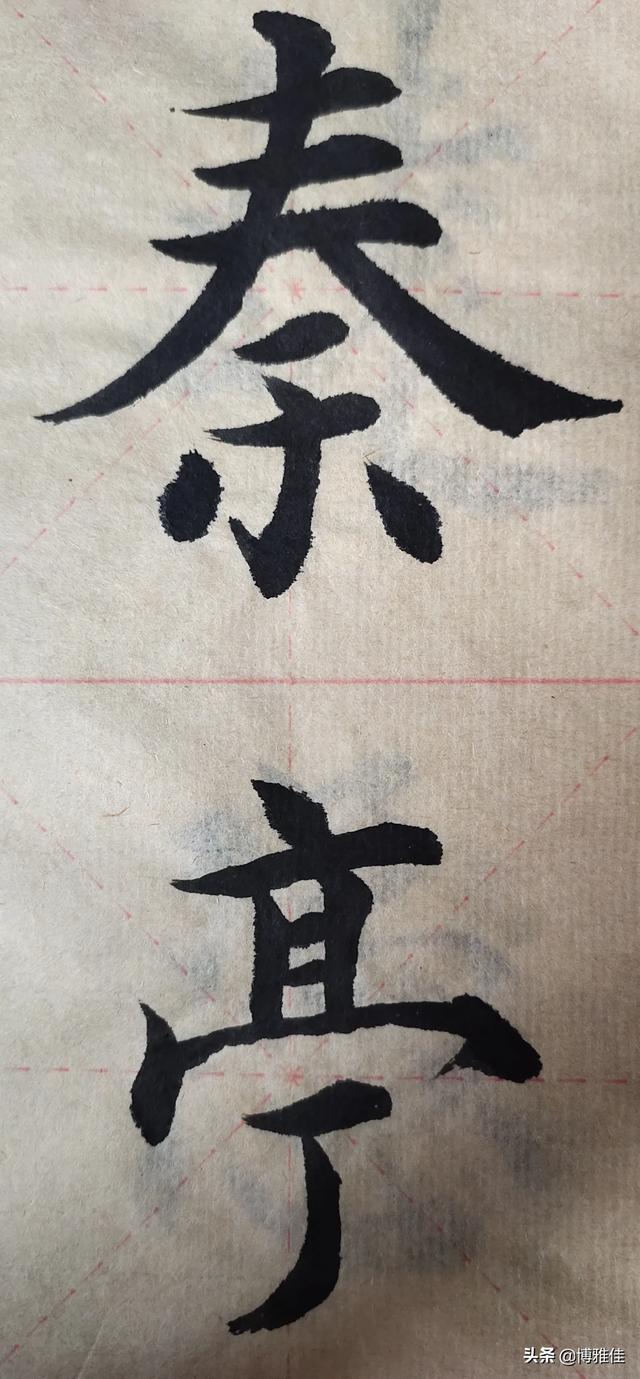 秦亭
头条 @博雅佳